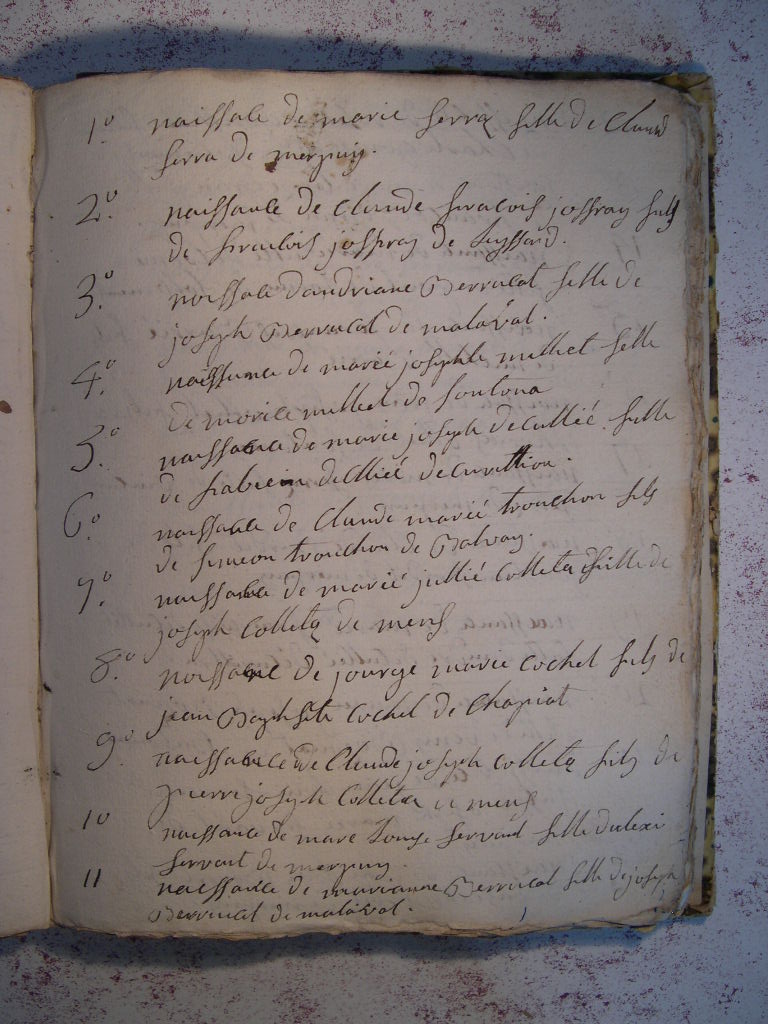 1º naissale de marie serra fille de Claude
serra de merpuis.
2º. naissance de claude francois joffray fils
de francois joffray de Luyssard.
3º. naissale dandriane Berrucat fille de
joseph Berrucat de malaval.
4º. naissance de marié josephte millet fille
de morice millet de fontona
5º. naissance de marie joseph decullié fille
de fabien decllié de
6º. naissance de Claude marié trouchon fils
de simeon trouchon de Balvay.
7º. naissance de marié jullié Colleta fille de
joseph Colleta de mens
8º. naissance de jourge marie cochet fils de
jean Baptiste cochet de Chapiat
9º naissance de Claude joseph Colleta fils de
pierre joseph Colleta de mens
10 naissance de mare Louyse servant fille dalexi
servant de merpuis
11 naissance de marianne Berrucat fille de joseph
Berrucat de malaval.